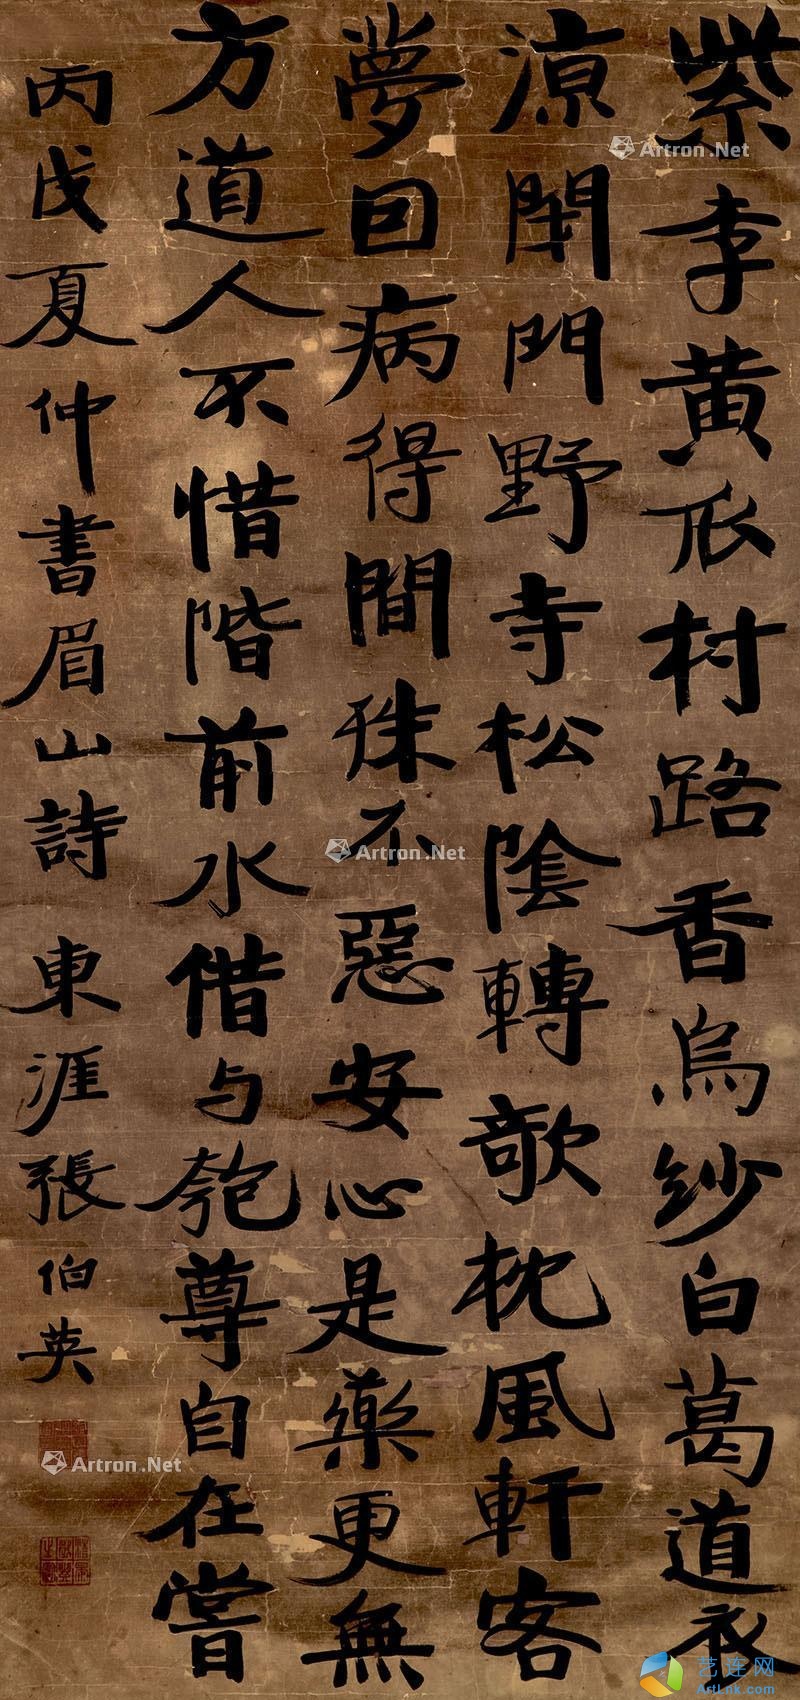 紫李黄瓜村路香烏紗白葛道衣
涼閉門野寺松陰轉欹枕風軒客
夢回病得間殊不惡安心是藥更無
方道人不惜階前水借与匏尊自在嘗
丙戌夏仲書眉山詩 東涯張伯英
Artron.Net
Artron.Net
Artron.Net
艺连网
ArtLnk.com